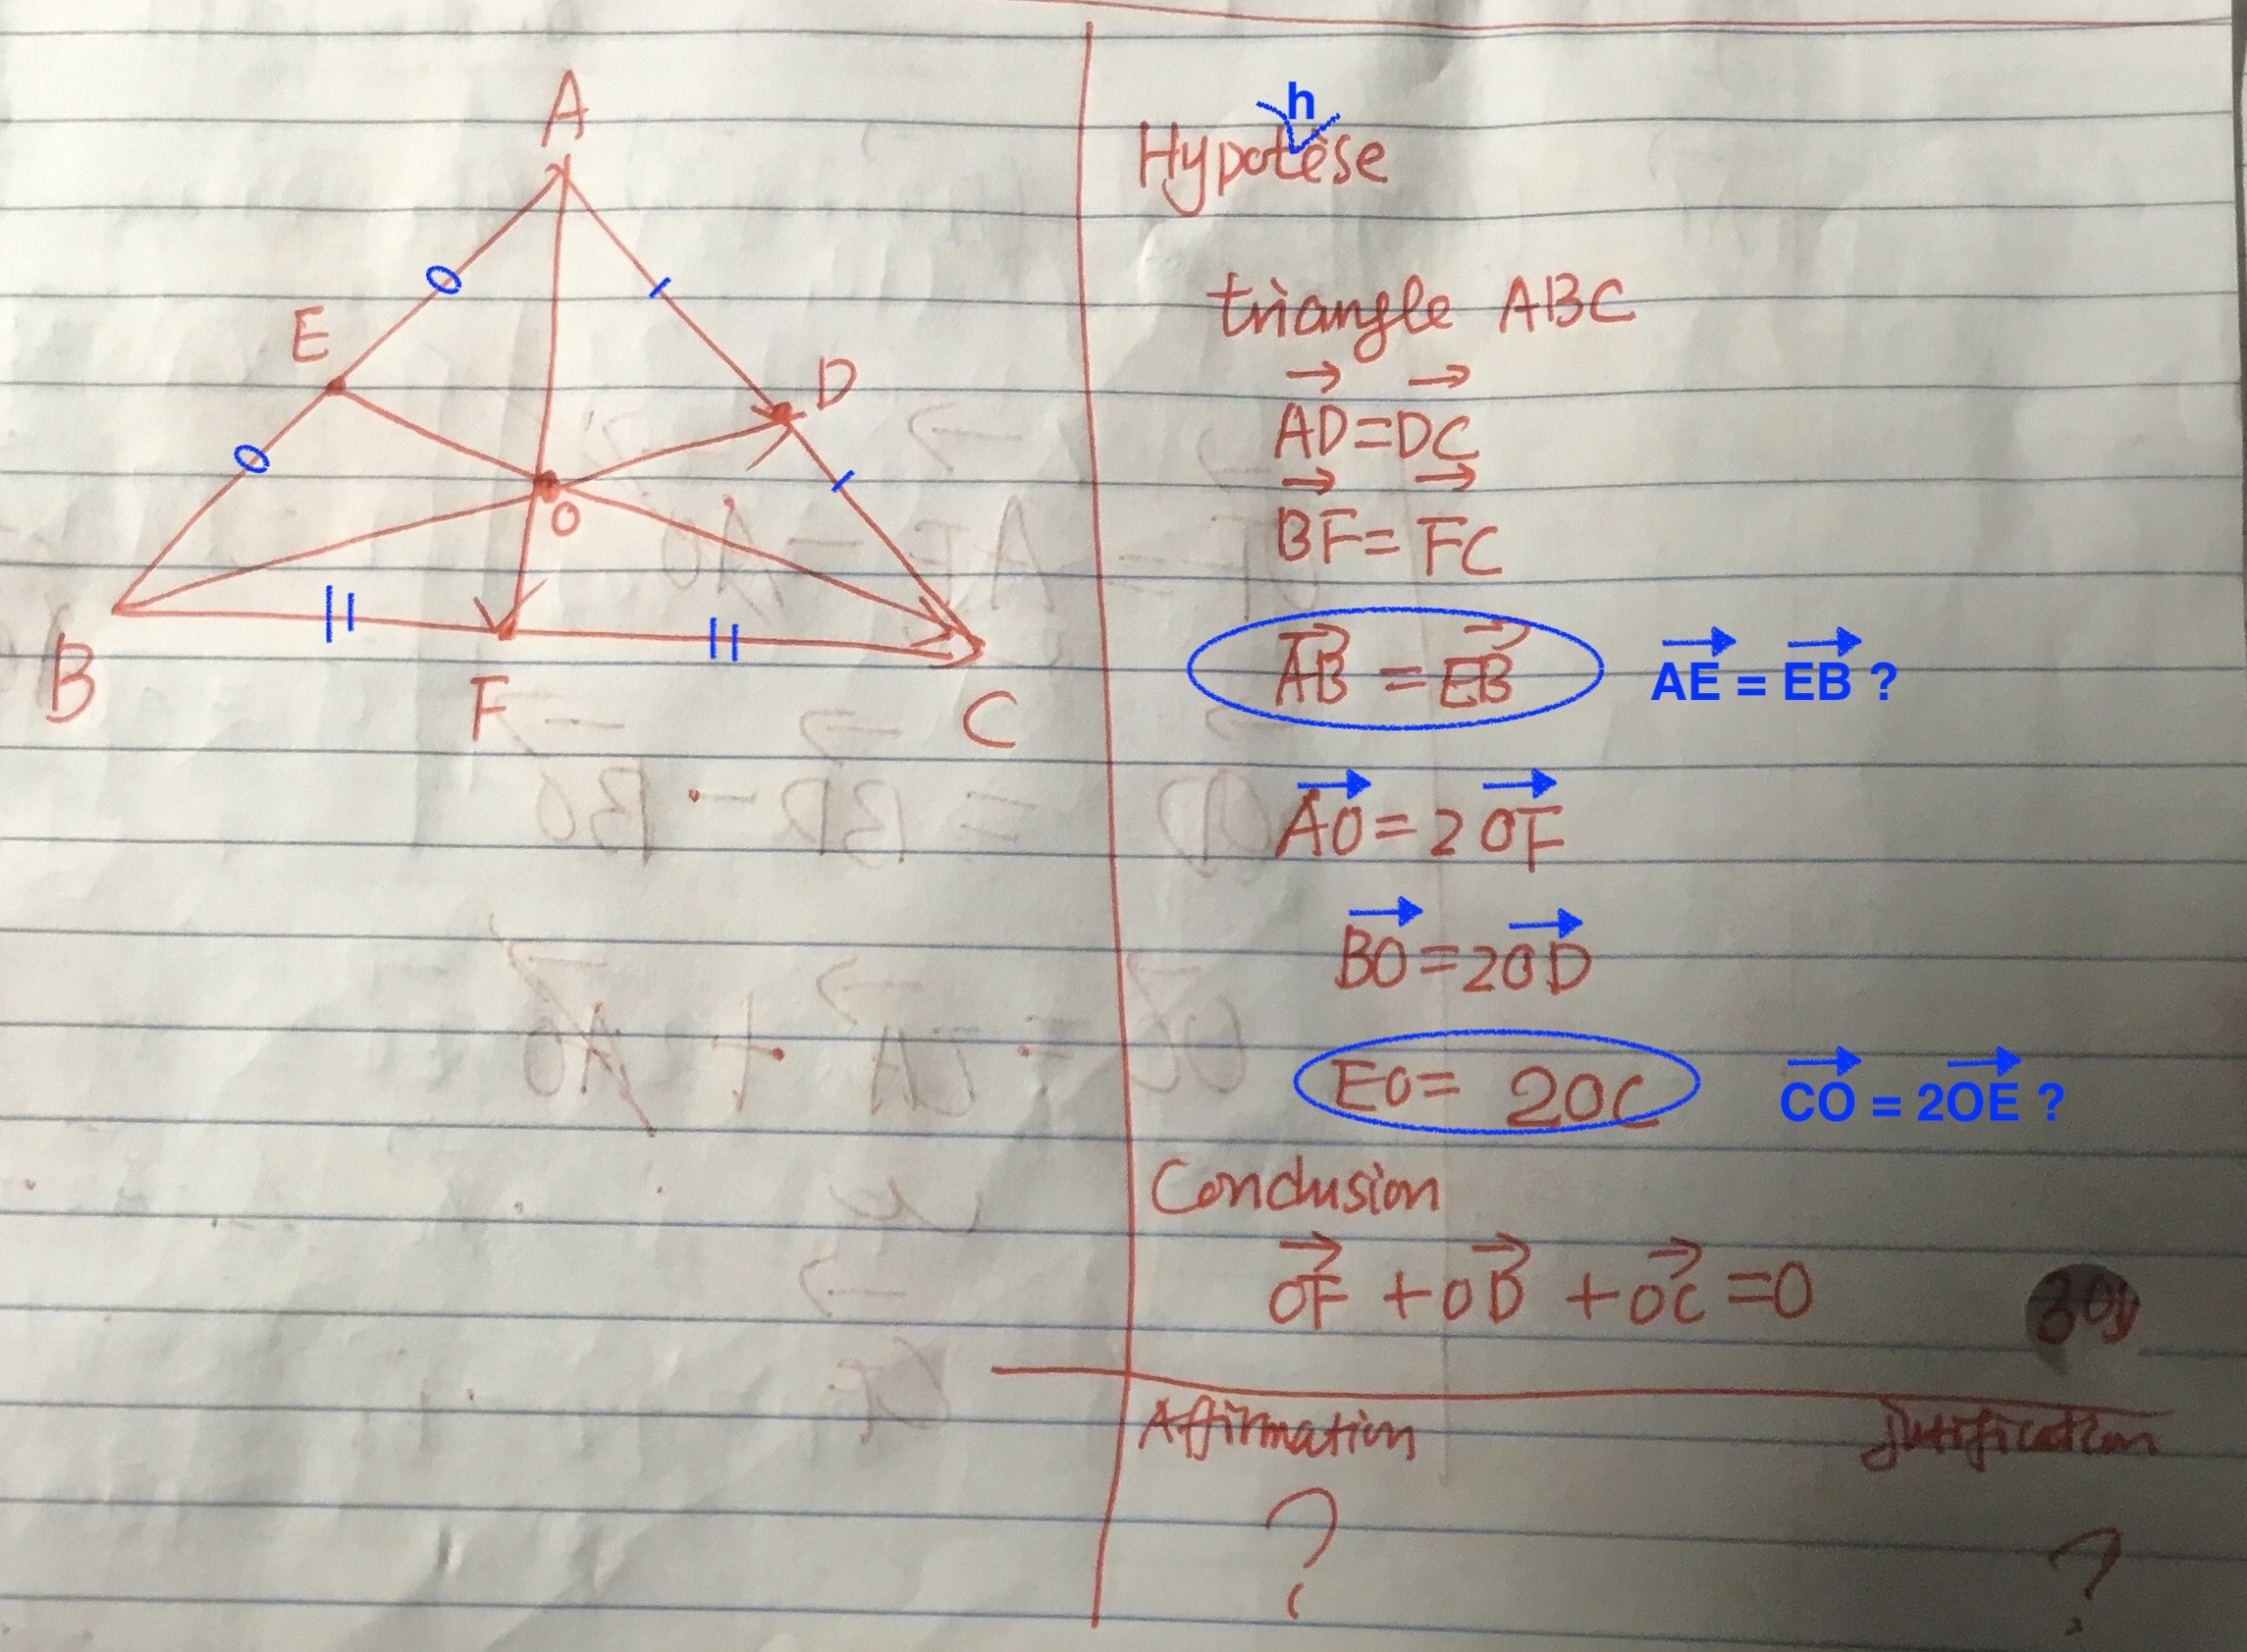 A
E
D
O
B
F
C
h
Hypotèse
triangle ABC
AD=DC
BF=FC
AB=EB AE = EB ?
AO=2OF
BO=2OD
EO= 2OC CO = 2OE ?
Conclusion
OF +OD +OC =0
Affirmation Jutification
? ?